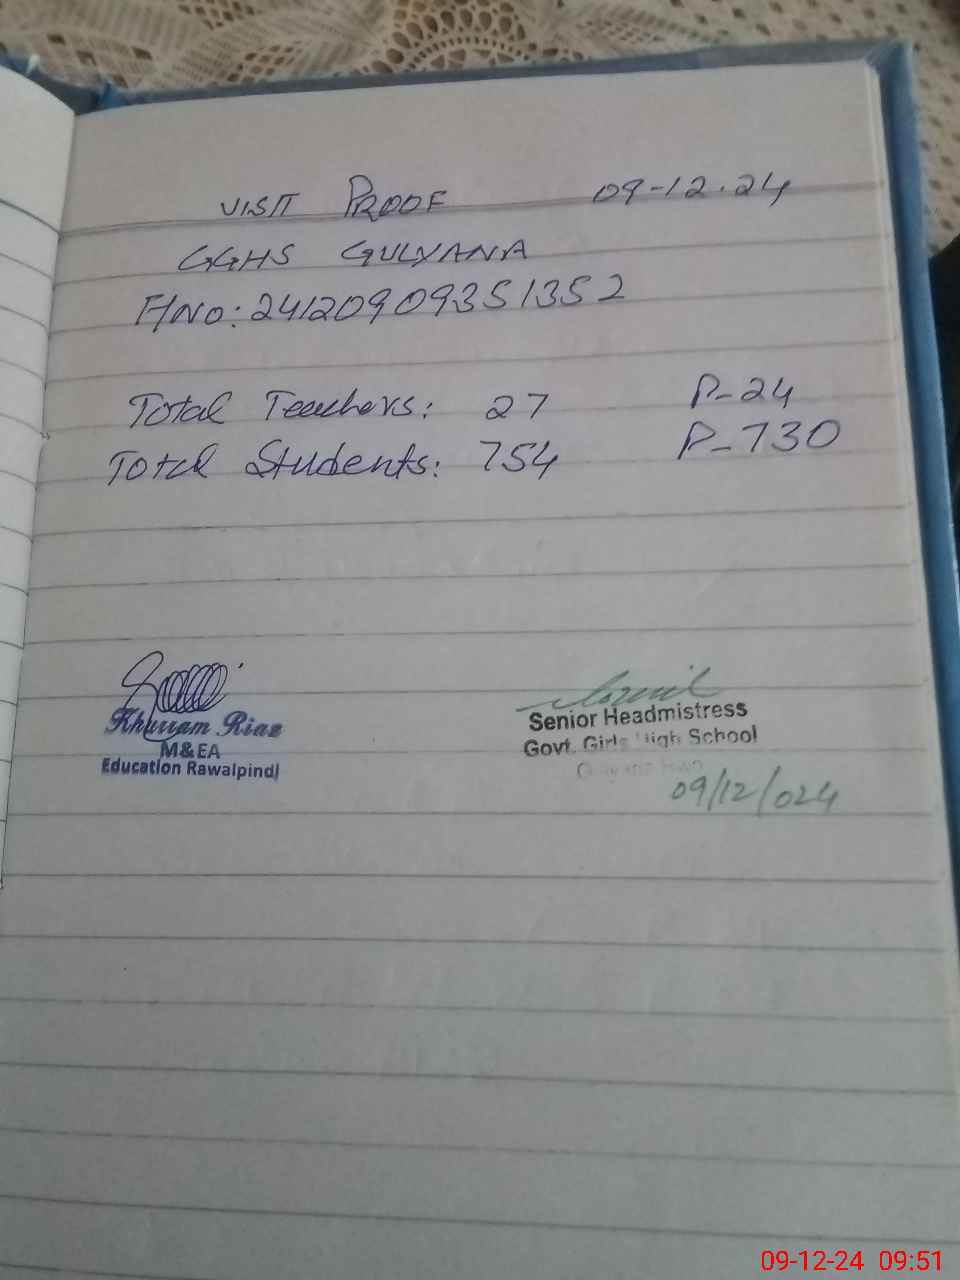 VISIT PROOF 09-12-24
GGHS GULYANA
F/NO: 24120909351352
Total Teachers: 27 P-24
Total Students: 754 P-730
Khurram Riaz
M&EA
Education Rawalpindi
Senior Headmistress
Govt. Girls High School
09/12/024
09-12-24 09:51